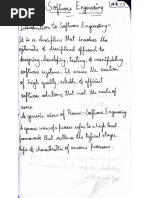 Software Engineering
Introduction to Software Engineering:-
It is a discipline that involves the
systematic of disciplined approach to
designing, developing, testing, of maintaining
software systems. It ensure the creation
of high quality, reliable, of efficient
software solutions that meet the needs of
users.
A generic view of Process - Software Engineering
A generic view of a process refers to a high level
framework that outlines the typical stages
of characteristics of various processes.